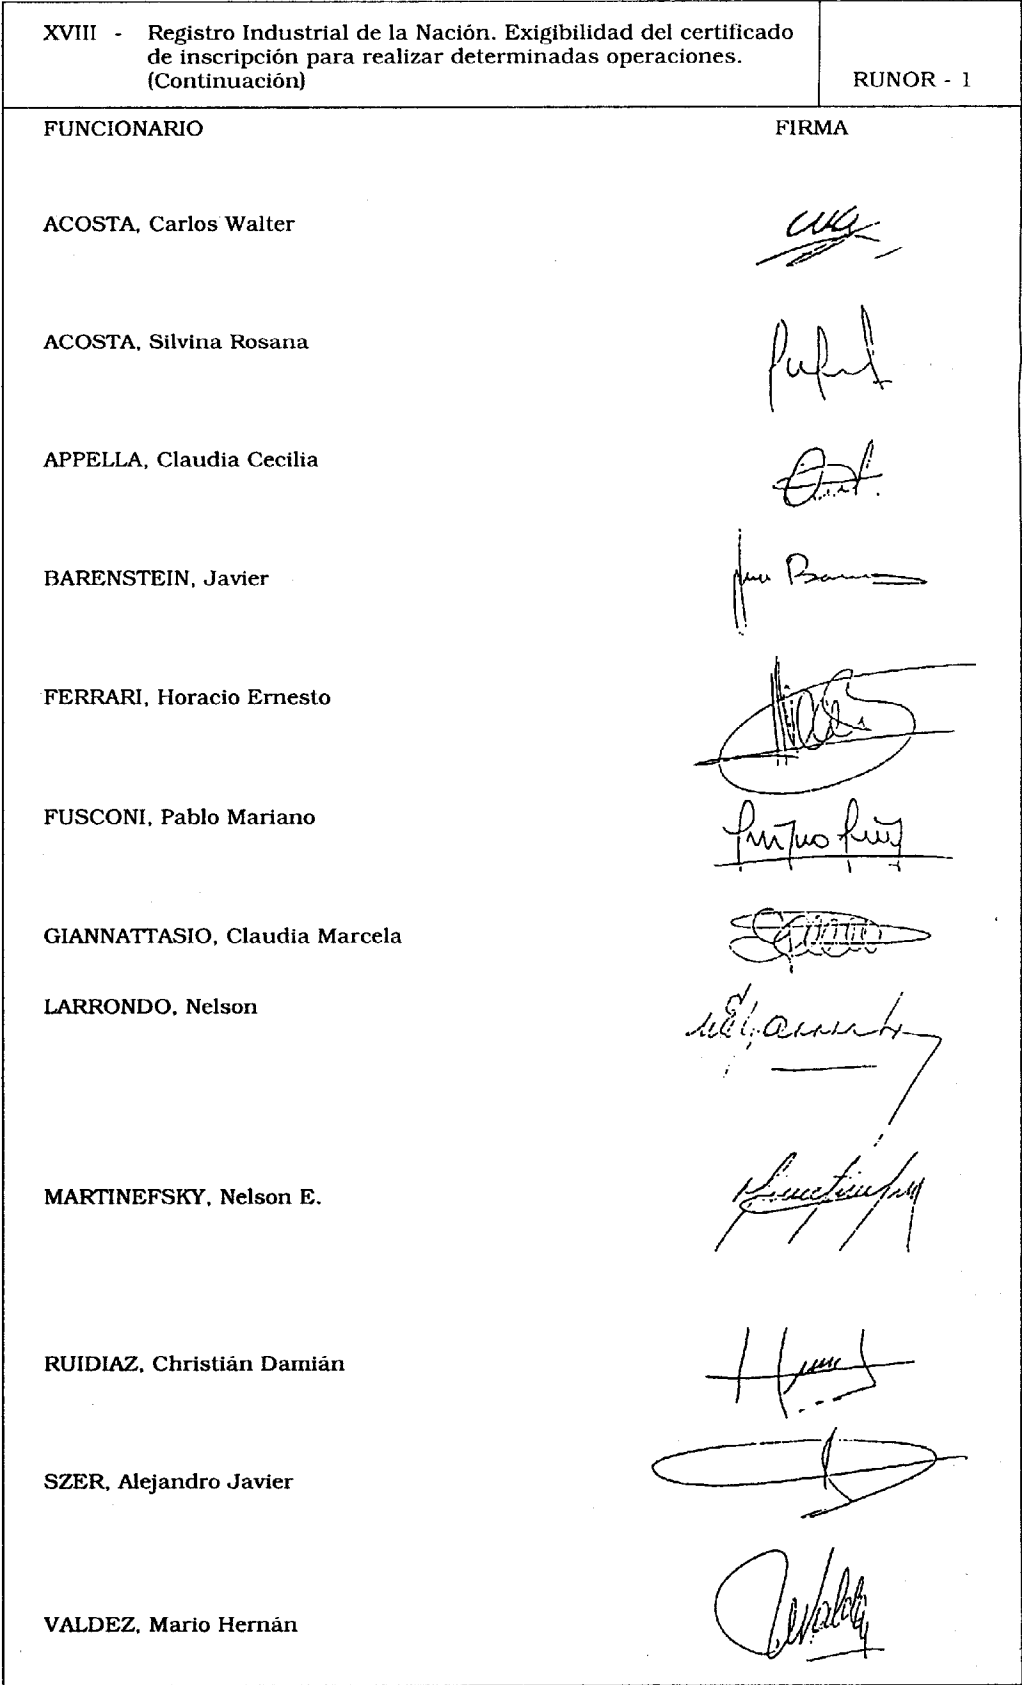 XVIII - Registro Industrial de la Nación. Exigibilidad del certificado
de inscripción para realizar determinadas operaciones.
(Continuación)
RUNOR - 1
FUNCIONARIO FIRMA
ACOSTA, Carlos Walter
ACOSTA, Silvina Rosana
APPELLA, Claudia Cecilia
BARENSTEIN, Javier
FERRARI, Horacio Ernesto
FUSCONI, Pablo Mariano
GIANNATTASIO, Claudia Marcela
LARRONDO, Nelson
MARTINEFSKY, Nelson E.
RUIDIAZ, Christián Damián
SZER, Alejandro Javier
VALDEZ, Mario Hernán